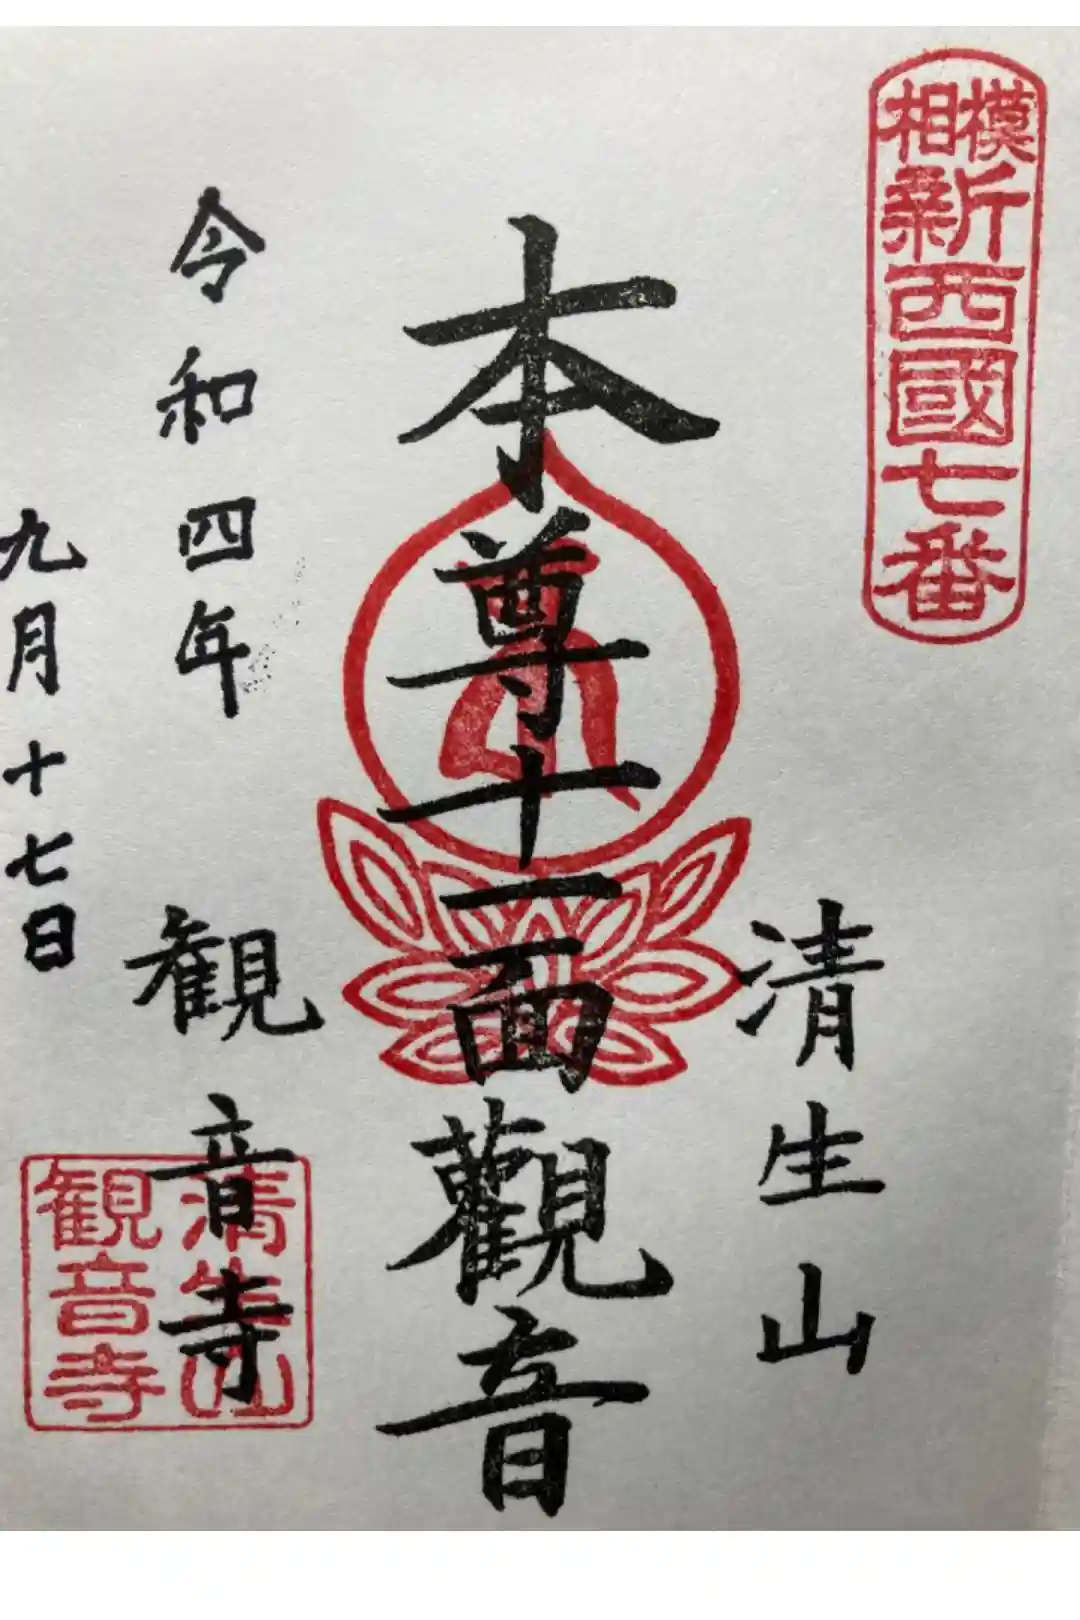 相模
新西國七番
本尊十一面觀音
清生山
観音寺
令和四年
九月十七日
清生山
観音寺